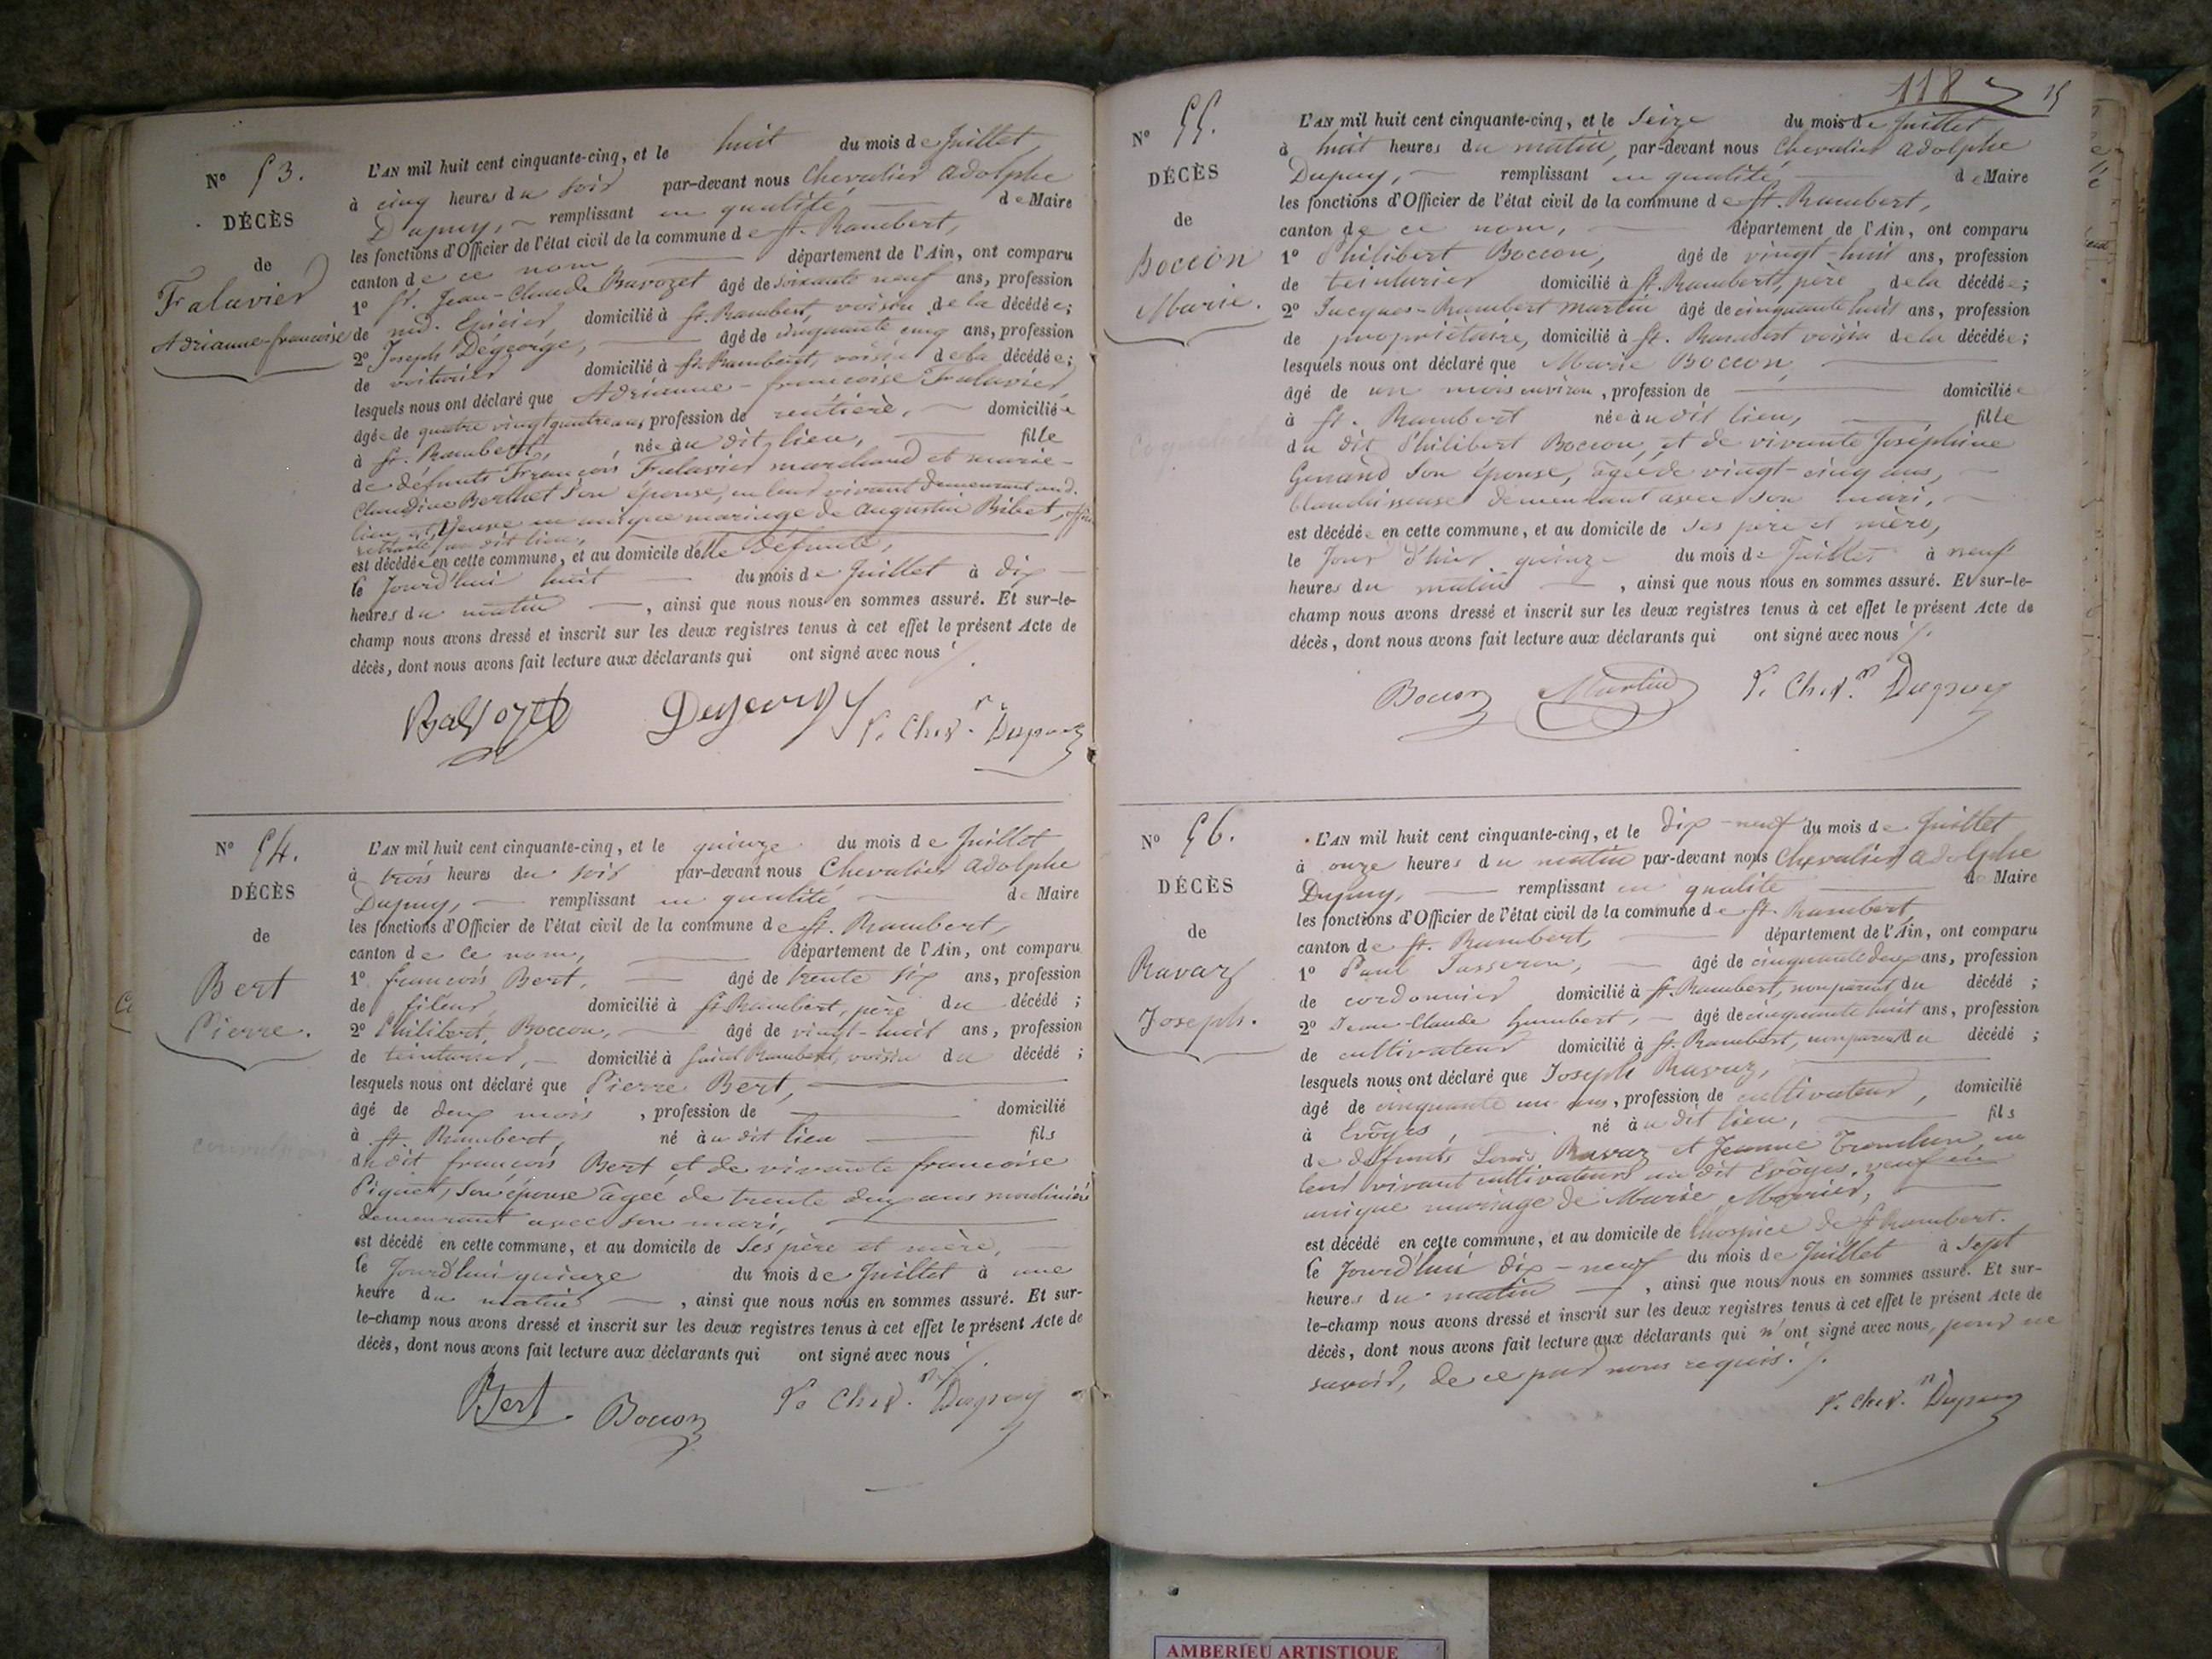 N° 53.
DÉCÈS
de
Falavier
Adrianne-francoise
L'AN mil huit cent cinquante-cinq, et le huit du mois de Juillet,
à cinq heures du soir par-devant nous Chevalier Adolphe
Dupuy, remplissant en qualité de Maire
les fonctions d'Officier de l'état civil de la commune de St. Rambert,
canton de ce nom, département de l'Ain, ont comparu
1° Sr. Jean-Claude Bavozet âgé de soixante neuf ans, profession
de md. Epicier, domicilié à St. Rambert, voisin de la décédée;
2° Joseph Dégeorge, âgé de cinquante cinq ans, profession
de voiturier domicilié à St. Rambert, voisin de la décédée;
lesquels nous ont déclaré que Adrianne-francoise Falavier,
âgée de quatre vingt quatre ans, profession de rentière, domiciliée
à St. Rambert, née au dit lieu, fille
de défunts François Falavier marchand et marie-
Claudine Berthet son épouse, en leur vivant demeurant aud.
lieu, et Veuve en unique mariage de Augustin Bibet,
retraité au dit lieu,
est décédée en cette commune, et au domicile d'elle défunte,
le Jourd'hui huit du mois de Juillet à dix
heures du matin, ainsi que nous nous en sommes assuré. Et sur-le-
champ nous avons dressé et inscrit sur les deux registres tenus à cet effet le présent Acte de
décès, dont nous avons fait lecture aux déclarants qui ont signé avec nous
Bavozet Degeorge Chev. Dupuy
N° 54.
DÉCÈS
de
Bert
Pierre.
convulsions
L'AN mil huit cent cinquante-cinq, et le quinze du mois de Juillet
à trois heures du soir par-devant nous Chevalier Adolphe
Dupuy, remplissant en qualité de Maire
les fonctions d'Officier de l'état civil de la commune de St. Rambert,
canton de ce nom, département de l'Ain, ont comparu
1° françois Bert, âgé de trente six ans, profession
de fileur, domicilié à St. Rambert, père du décédé ;
2° Philibert Boccon, âgé de vingt-huit ans, profession
de teinturier, domicilié à Saint Rambert, voisin du décédé ;
lesquels nous ont déclaré que Pierre Bert,
âgé de deux mois, profession de domicilié
à St. Rambert, né au dit lieu fils
du dit françois Bert et de vivante francoise
Piquet, son épouse âgée de trente deux ans moulinière
demeurant avec son mari,
est décédé en cette commune, et au domicile de ses père et mère,
le Jourd'hui quinze du mois de Juillet à une
heure du matin, ainsi que nous nous en sommes assuré. Et sur-
le-champ nous avons dressé et inscrit sur les deux registres tenus à cet effet le présent Acte de
décès, dont nous avons fait lecture aux déclarants qui ont signé avec nous
Bert Boccon Chev. Dupuy
118
15
N° 55.
DÉCÈS
de
Boccon
Marie.
L'AN mil huit cent cinquante-cinq, et le Seize du mois de Juillet
à huit heures du matin, par-devant nous Chevalier Adolphe
Dupuy, remplissant en qualité de Maire
les fonctions d'Officier de l'état civil de la commune de St. Rambert,
canton de ce nom, département de l'Ain, ont comparu
1° Philibert Boccon, âgé de vingt-huit ans, profession
de teinturier domicilié à St. Rambert, père de la décédée;
2° Jacques-Rambert Martin âgé de cinquante huit ans, profession
de propriétaire, domicilié à St. Rambert voisin de la décédée;
lesquels nous ont déclaré que Marie Boccon,
âgé de un mois environ, profession de domiciliée
à St. Rambert née au dit lieu, fille
du dit Philibert Boccon, et de vivante Joséphine
Genand son épouse, agée de vingt-cinq ans,
blanchisseuse demeurant avec son mari,
est décédée en cette commune, et au domicile de ses père et mère,
le Jour d'hier quinze du mois de Juillet à neuf
heures du matin, ainsi que nous nous en sommes assuré. Et sur-le-
champ nous avons dressé et inscrit sur les deux registres tenus à cet effet le présent Acte de
décès, dont nous avons fait lecture aux déclarants qui ont signé avec nous
Boccon Martin Chev. Dupuy
N° 56.
DÉCÈS
de
Ravaz
Joseph.
L'AN mil huit cent cinquante-cinq, et le dix-neuf du mois de Juillet
à onze heures du matin par-devant nous Chevalier Adolphe
Dupuy, remplissant en qualité de Maire
les fonctions d'Officier de l'état civil de la commune de St. Rambert,
canton de St. Rambert, département de l'Ain, ont comparu
1° Paul Tasseron, âgé de cinquante deux ans, profession
de cordonnier domicilié à St. Rambert, non parent du décédé ;
2° Jean-Claude Humbert, âgé de cinquante huit ans, profession
de cultivateur domicilié à St. Rambert, non parent du décédé ;
lesquels nous ont déclaré que Joseph Ravaz,
âgé de cinquante un ans, profession de cultivateur, domicilié
à Evôges, né au dit lieu, fils
de défunts Louis Ravaz et Jeanne Tronchon, en
leur vivant cultivateurs au dit Evôges, veuf en
unique mariage de Marie Monnier,
est décédé en cette commune, et au domicile de l'hospice de St Rambert.
le Jourd'hui dix-neuf du mois de Juillet à sept
heures du matin, ainsi que nous nous en sommes assuré. Et sur-
le-champ nous avons dressé et inscrit sur les deux registres tenus à cet effet le présent Acte de
décès, dont nous avons fait lecture aux déclarants qui n'ont signé avec nous, pour ne
savoir, de ce par nous requis.
Chev. Dupuy
AMBERIEU ARTISTIQUE